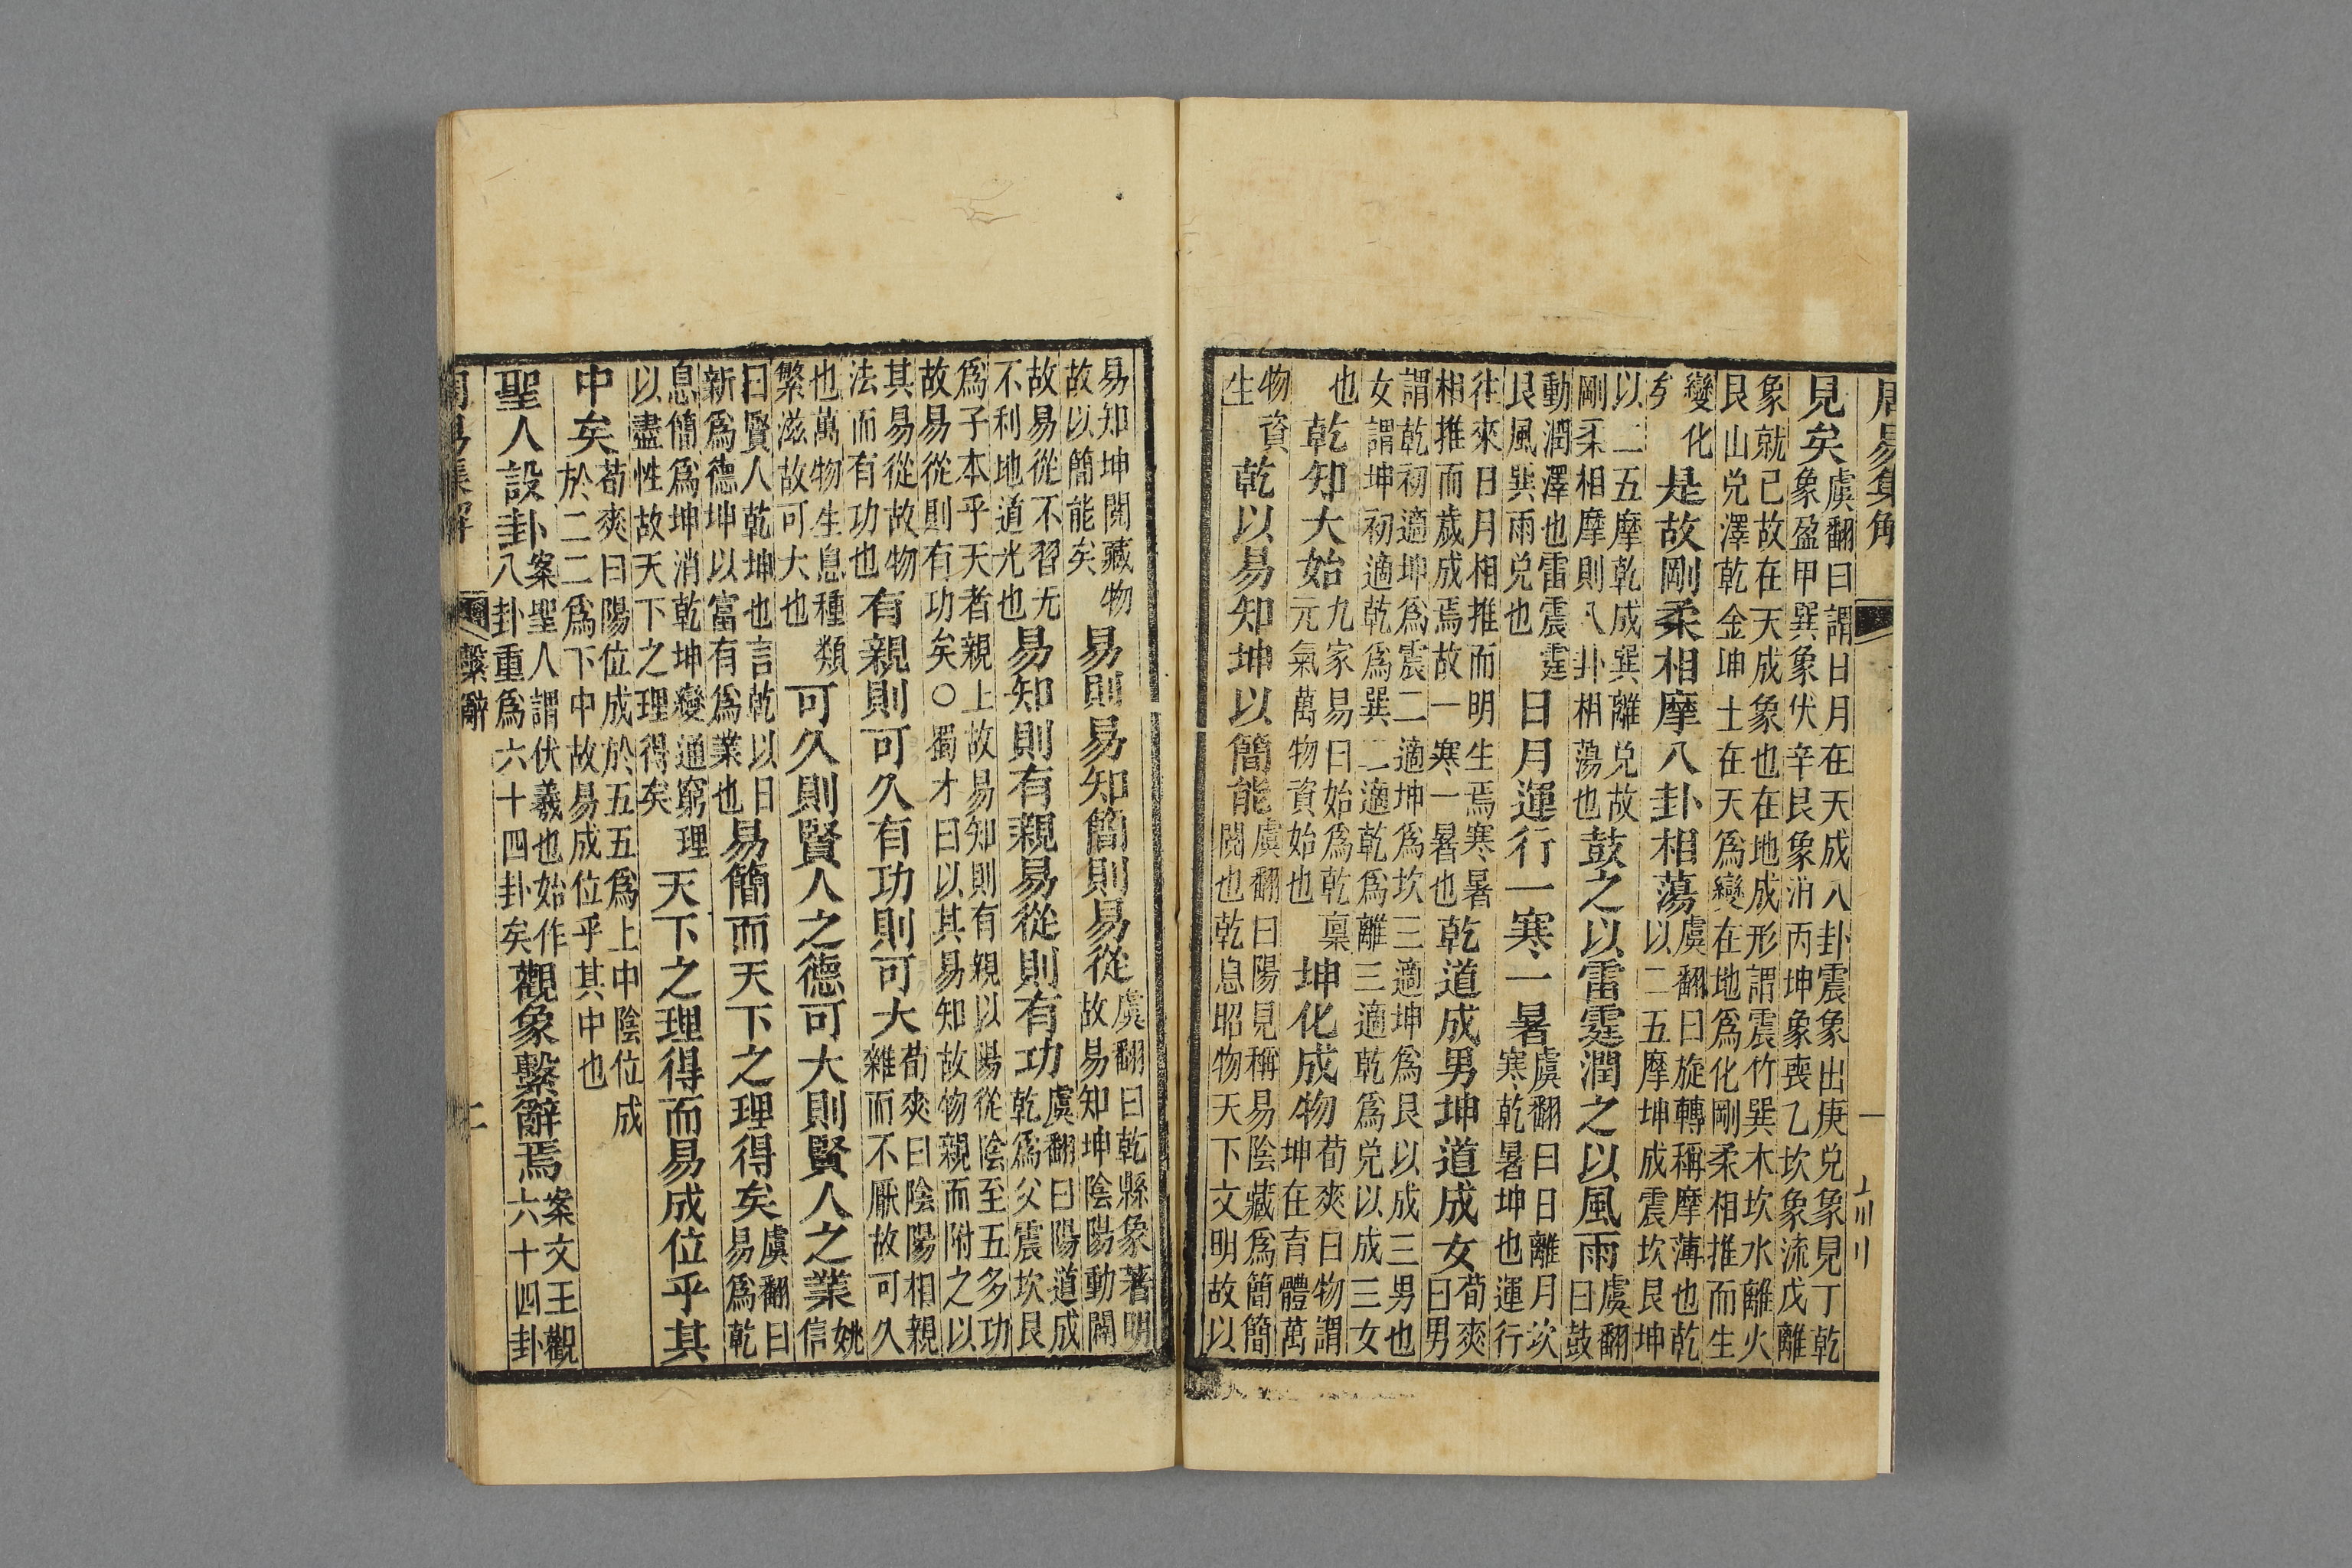 周易集解 一
見矣虞翻曰謂日月在天成八卦震象出庚兌象見丁乾象盈甲巽象伏辛艮象消丙坤象喪乙坎象流戊離
象就己故在天成象也在地成形謂震竹巽木坎水離火艮山兌澤乾金坤土在天爲變在地爲化剛柔相推而生
變化矣是故剛柔相摩八卦相蕩虞翻曰旋轉稱摩薄也乾以二五摩坤成震坎艮坤
以二五摩乾成巽離兌故剛柔相摩則八卦相蕩也鼓之以雷霆潤之以風雨虞翻曰鼓
動潤澤也雷震霆艮風巽雨兌也日月運行一寒一暑虞翻曰日離月坎寒乾暑坤也運行
往來日月相推而明生焉寒暑相推而歲成焉故一寒一暑也乾道成男坤道成女荀爽曰男
謂乾初適坤爲震二適坤爲坎三適坤爲艮以成三男也女謂坤初適乾爲巽二適乾爲離三適乾爲兌以成三女
也乾知大始九家易曰始爲乾稟元氣萬物資始也坤化成物荀爽曰物謂坤在育體萬
物資生乾以易知坤以簡能虞翻曰陽見稱易陰藏爲簡簡閱也乾息昭物天下文明故以
易知坤閱藏物故以簡能矣易則易知簡則易從虞翻曰乾縣象著明故易知坤陰陽動闢
故易從不習无不利地道光也易知則有親易從則有功虞翻曰陽道成乾爲父震坎艮
爲子本乎天者親上故易知則有親以陽從陰至五多功故易從則有功矣○蜀才曰以其易知故物親而附之以
其易從故物法而有功也有親則可久有功則可大荀爽曰陰陽相親雜而不厭故可久
也萬物生息種類繁滋故可大也可久則賢人之德可大則賢人之業姚信
曰賢人乾坤也言乾以日新爲德坤以富有爲業也易簡而天下之理得矣虞翻曰易爲乾
息簡爲坤消乾坤變通窮理以盡性故天下之理得矣天下之理得而易成位乎其
中矣荀爽曰陽位成於五五爲上中陰位成於二二爲下中故易成位乎其中也
聖人設卦案聖人謂伏羲也始作八卦重爲六十四卦矣觀象繫辭焉案文王觀六十四卦
周易集解 繫辭 二